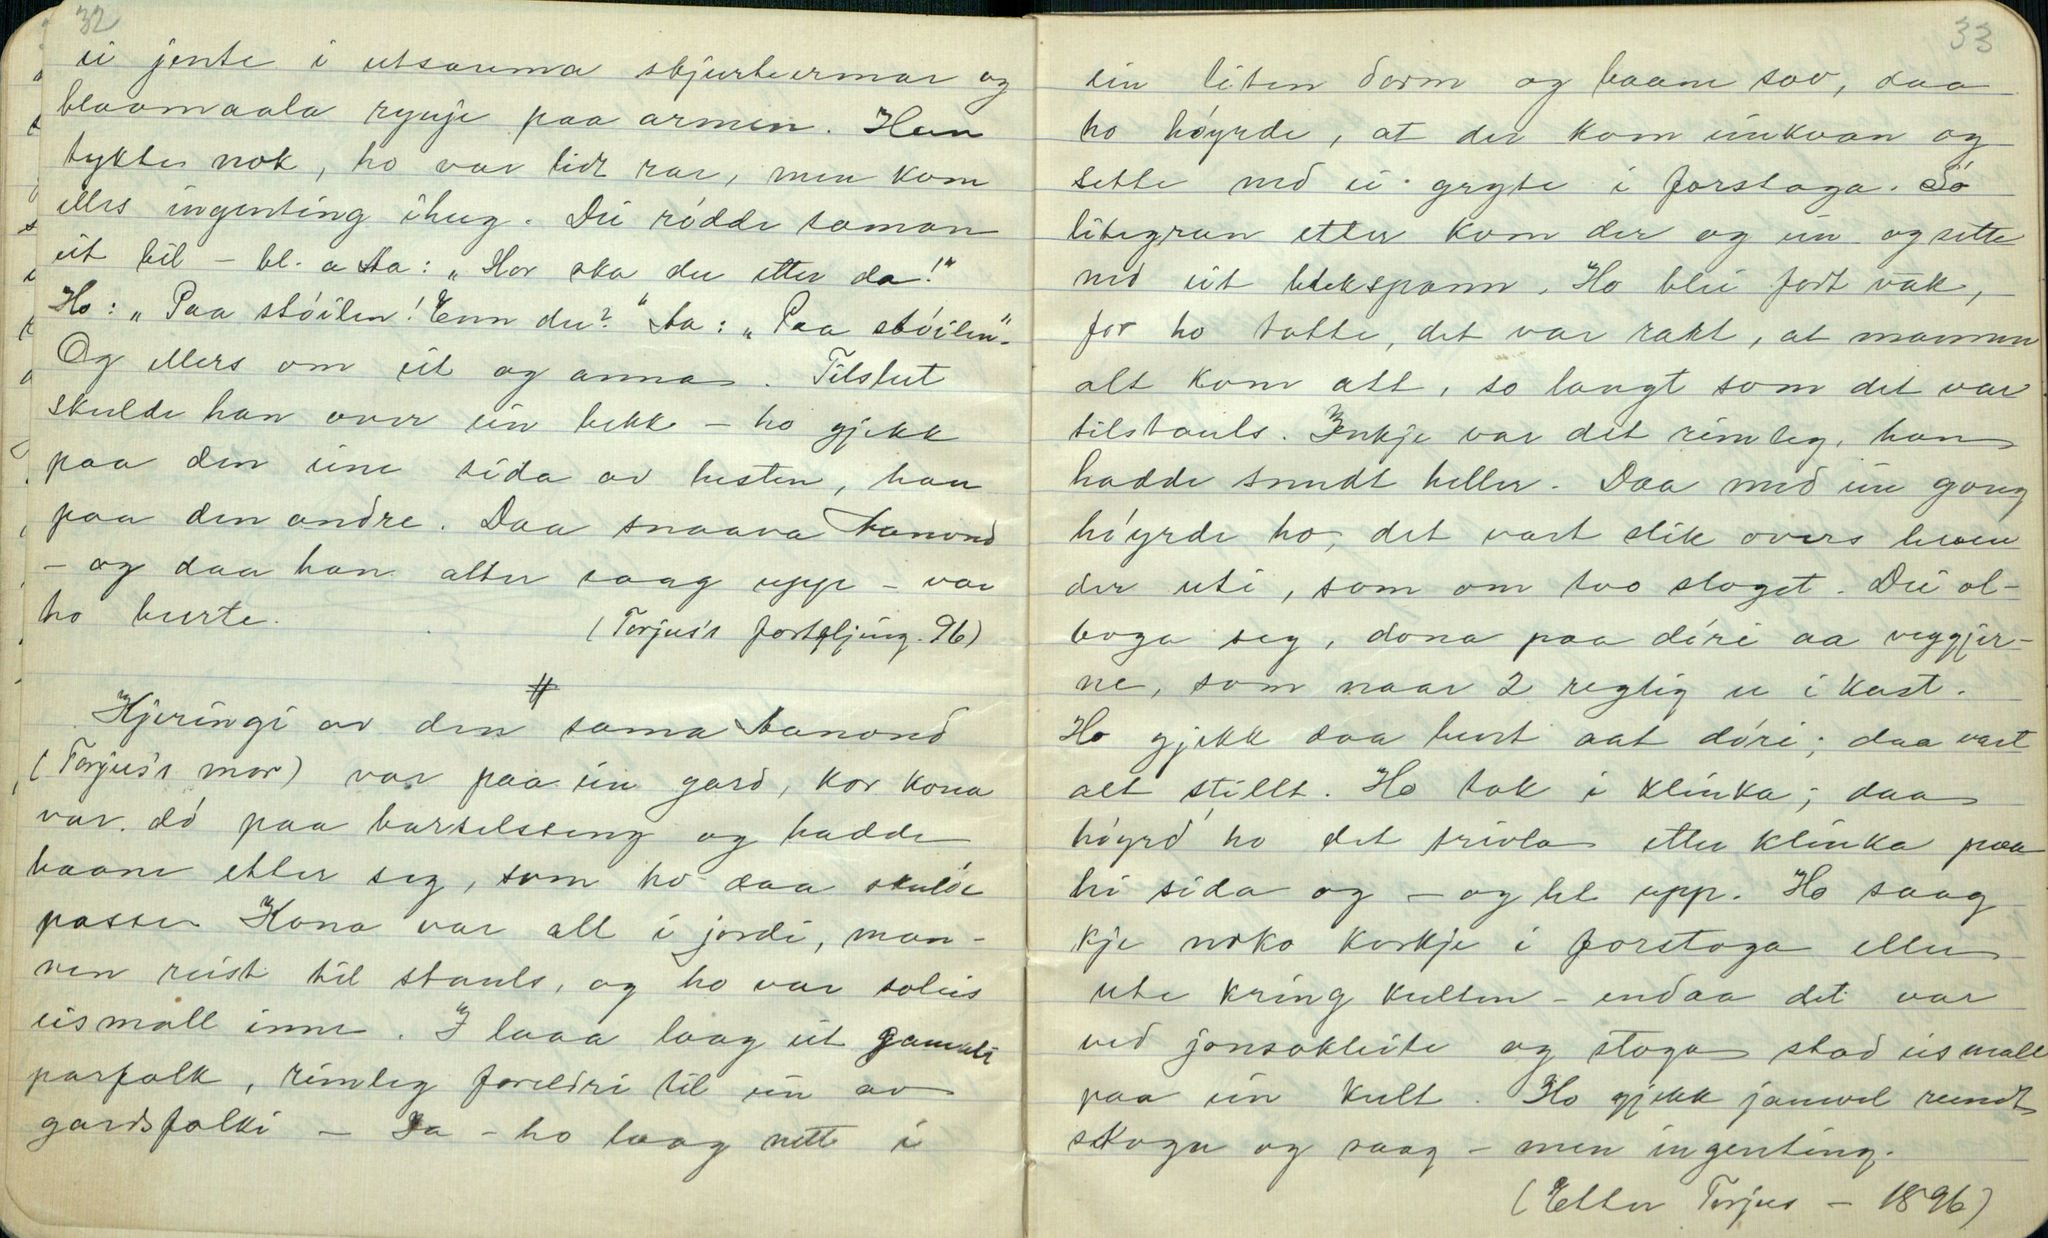 32
ei jente i utsauma skjurteermar og
blaamaala ryuje paa armen. Han
tykte nok, ho var lidt rar, men kom
elles ingenting ihug. Dei rødde saman
eit bil – bl. a Aa: „Hor ska du etter da!"
Ho: „Paa støilen! Enn du?" Aa: „Paa støilen".
Og ellers om eit og anna. Tilslut
skulde han over ein bekk – ho gjekk
paa den eine sida av hesten, han
paa den andre. Daa snaava Aanond
– og daa han atter saag upp – var
ho burte.
(Torjus's forteljing. 96)
#
Kjeringi av den sama Aanond
(Torjus's mor) var paa ein gard, kor kona
var dø paa barselseng og hadde
baane etter seg, som ho daa skulde
passe. Kona var alt i jordi, man-
nen reist til stauls, og ho var soleis
eismall inne. I loaa laag eit gamalt
parfolk, rimleg foreldri til ein av
gardsfolki – Da – ho laag nett i
33
ein liten dorm og baane sov, daa
ho høyrde, at der kom einkvan og
sette ned ei gryte i forstoga. So
litegran etter kom der og ein og sette
ned eit blekspann. Ho blei fort vak,
for ho totte, det var rakt, at mannen
alt kom att, so langt som det var
tilstauls. Inkje var det rimleg, han
hadde snudt heller. Daa med ein gong
høyrde ho, det vart slik overs leven
der uti, som om tvo sloget. Dei ol-
boga seg, dona paa døri aa veggjer-
ne, som naar 2 regtig er i kast.
Ho gjekk daa burt aat døri; daa vart
alt stillt. Ho tok i klinka; daa
høyrd' ho det trivla etter klinka paa
hi sida og – og let upp. Ho saag
kje noko korkje i forstoga eller
ute kring kulten – endaa det var
ved jonsokleite og stoga stod eismall
paa ein kult. Ho gjekk jamvel rundt
stoga og saag – men ingenting.
(Etter Torjus – 1896)